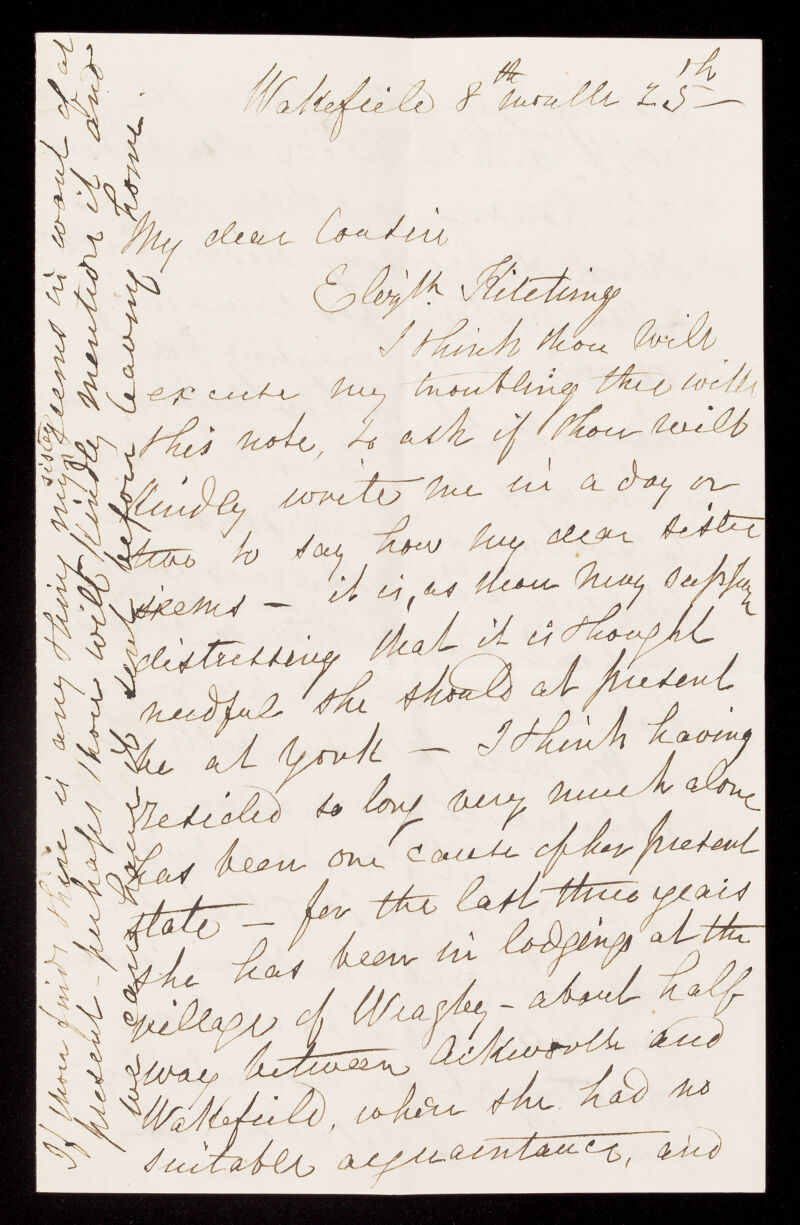 Wakefield 8th month 25th
My dear Cousin
Elizth. Kitching
I think thou will
excuse my troubling thee with
this note, to ask if thou wilt
kindly write me in a day or
two to say how my dear sister
seems - it is, as thou may suppose
distressing that it is thought
needful she should at present
be at York - I think having
resided so long very much alone
has been one cause of her present
state - for the last three years
she has been in lodgings at the
village of Wragby - about half
way between Ackworth and
Wakefield, where she had no
suitable acquaintance, and
If thou finds there is any thing my sister seems in want of at
present - perhaps thou will kindly mention it and
we can have it sent before leaving home.